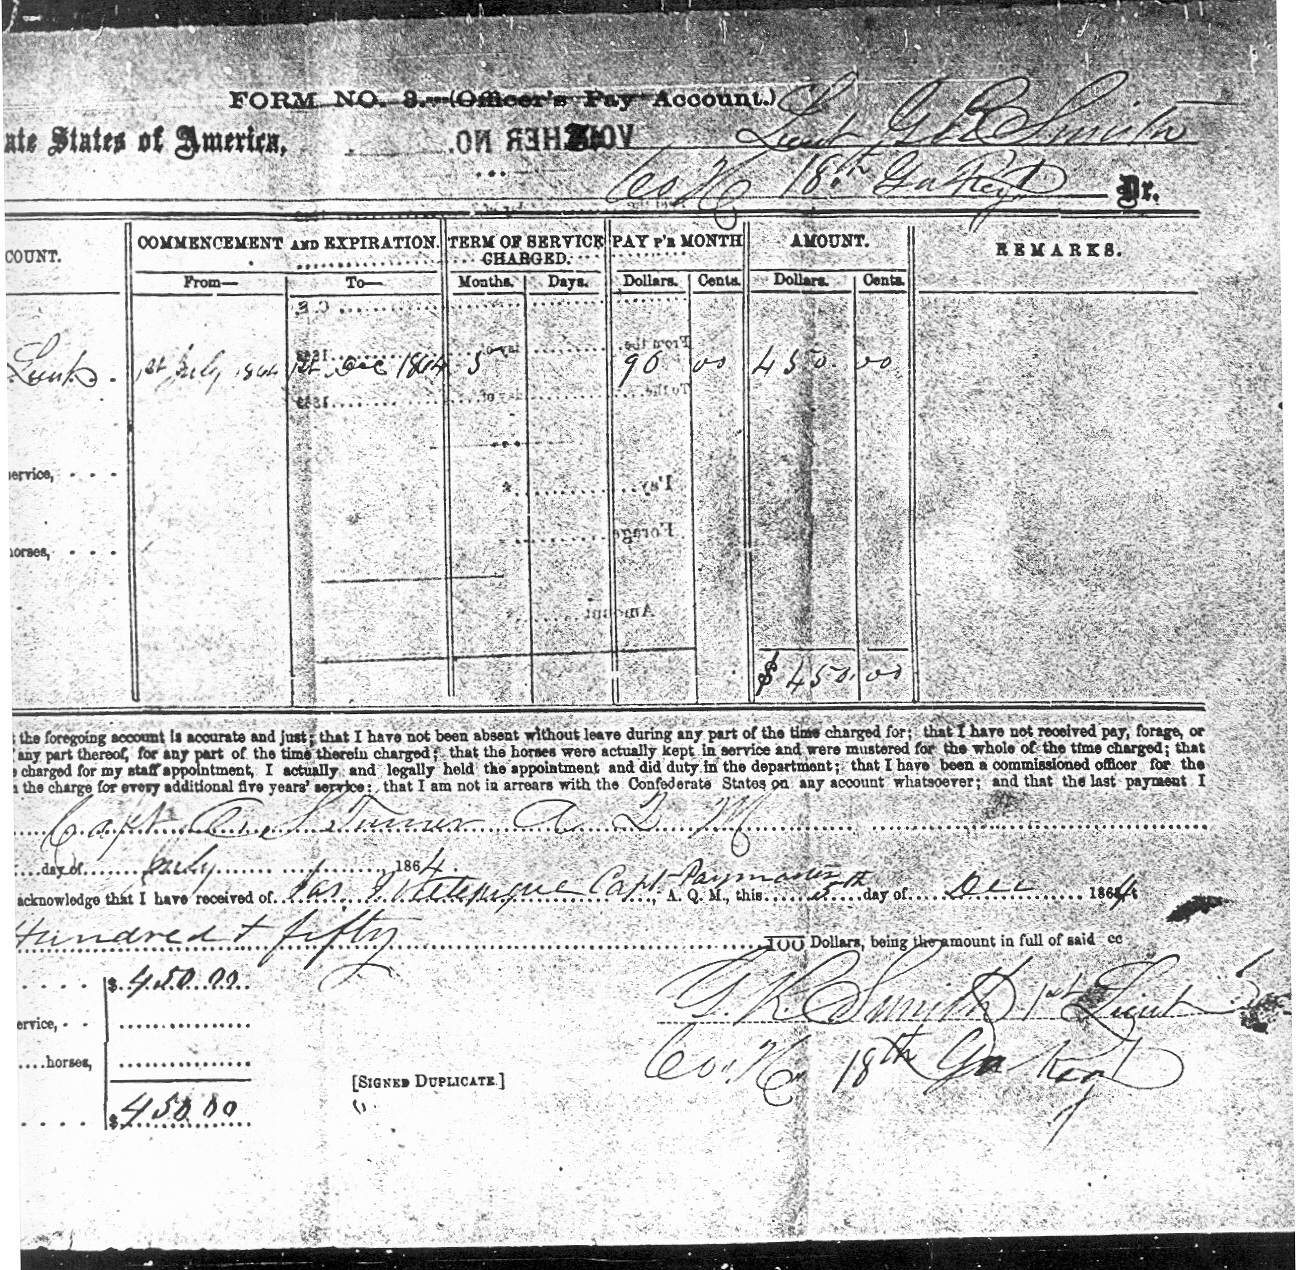 FORM NO. 3.—(Officer's Pay Account.)
ate States of America,
VOUCHER NO.
Lieut G R Smith
Co K 18th Ga Regt Dr.
COUNT. COMMENCEMENT AND EXPIRATION. TERM OF SERVICE CHARGED. PAY P'R MONTH AMOUNT. REMARKS.
From— To— Months. Days. Dollars. Cents. Dollars. Cents.
Lieut. 1st July 1864 1st Dec 1864 5 90 00 450 00
ervice,
Pay
horses,
Forage
Amount
$ 450 00
the foregoing account is accurate and just; that I have not been absent without leave during any part of the time charged for; that I have not received pay, forage, or
any part thereof, for any part of the time therein charged; that the horses were actually kept in service and were mustered for the whole of the time charged; that
charged for my staff appointment, I actually and legally held the appointment and did duty in the department; that I have been a commissioned officer for the
the charge for every additional five years' service; that I am not in arrears with the Confederate States on any account whatsoever; and that the last payment I
Capt S Turner A Q M
day of July 1864
acknowledge that I have received of Jas. Capt Paymaster, A. Q. M., this 5th day of Dec 1864
Hundred & fifty 100 Dollars, being the amount in full of said
$ 450.00
G. R. Smith 1st Lieut
ervice,
Co. K 18th Ga Regt
....horses,
[SIGNED DUPLICATE.]
$ 450.00